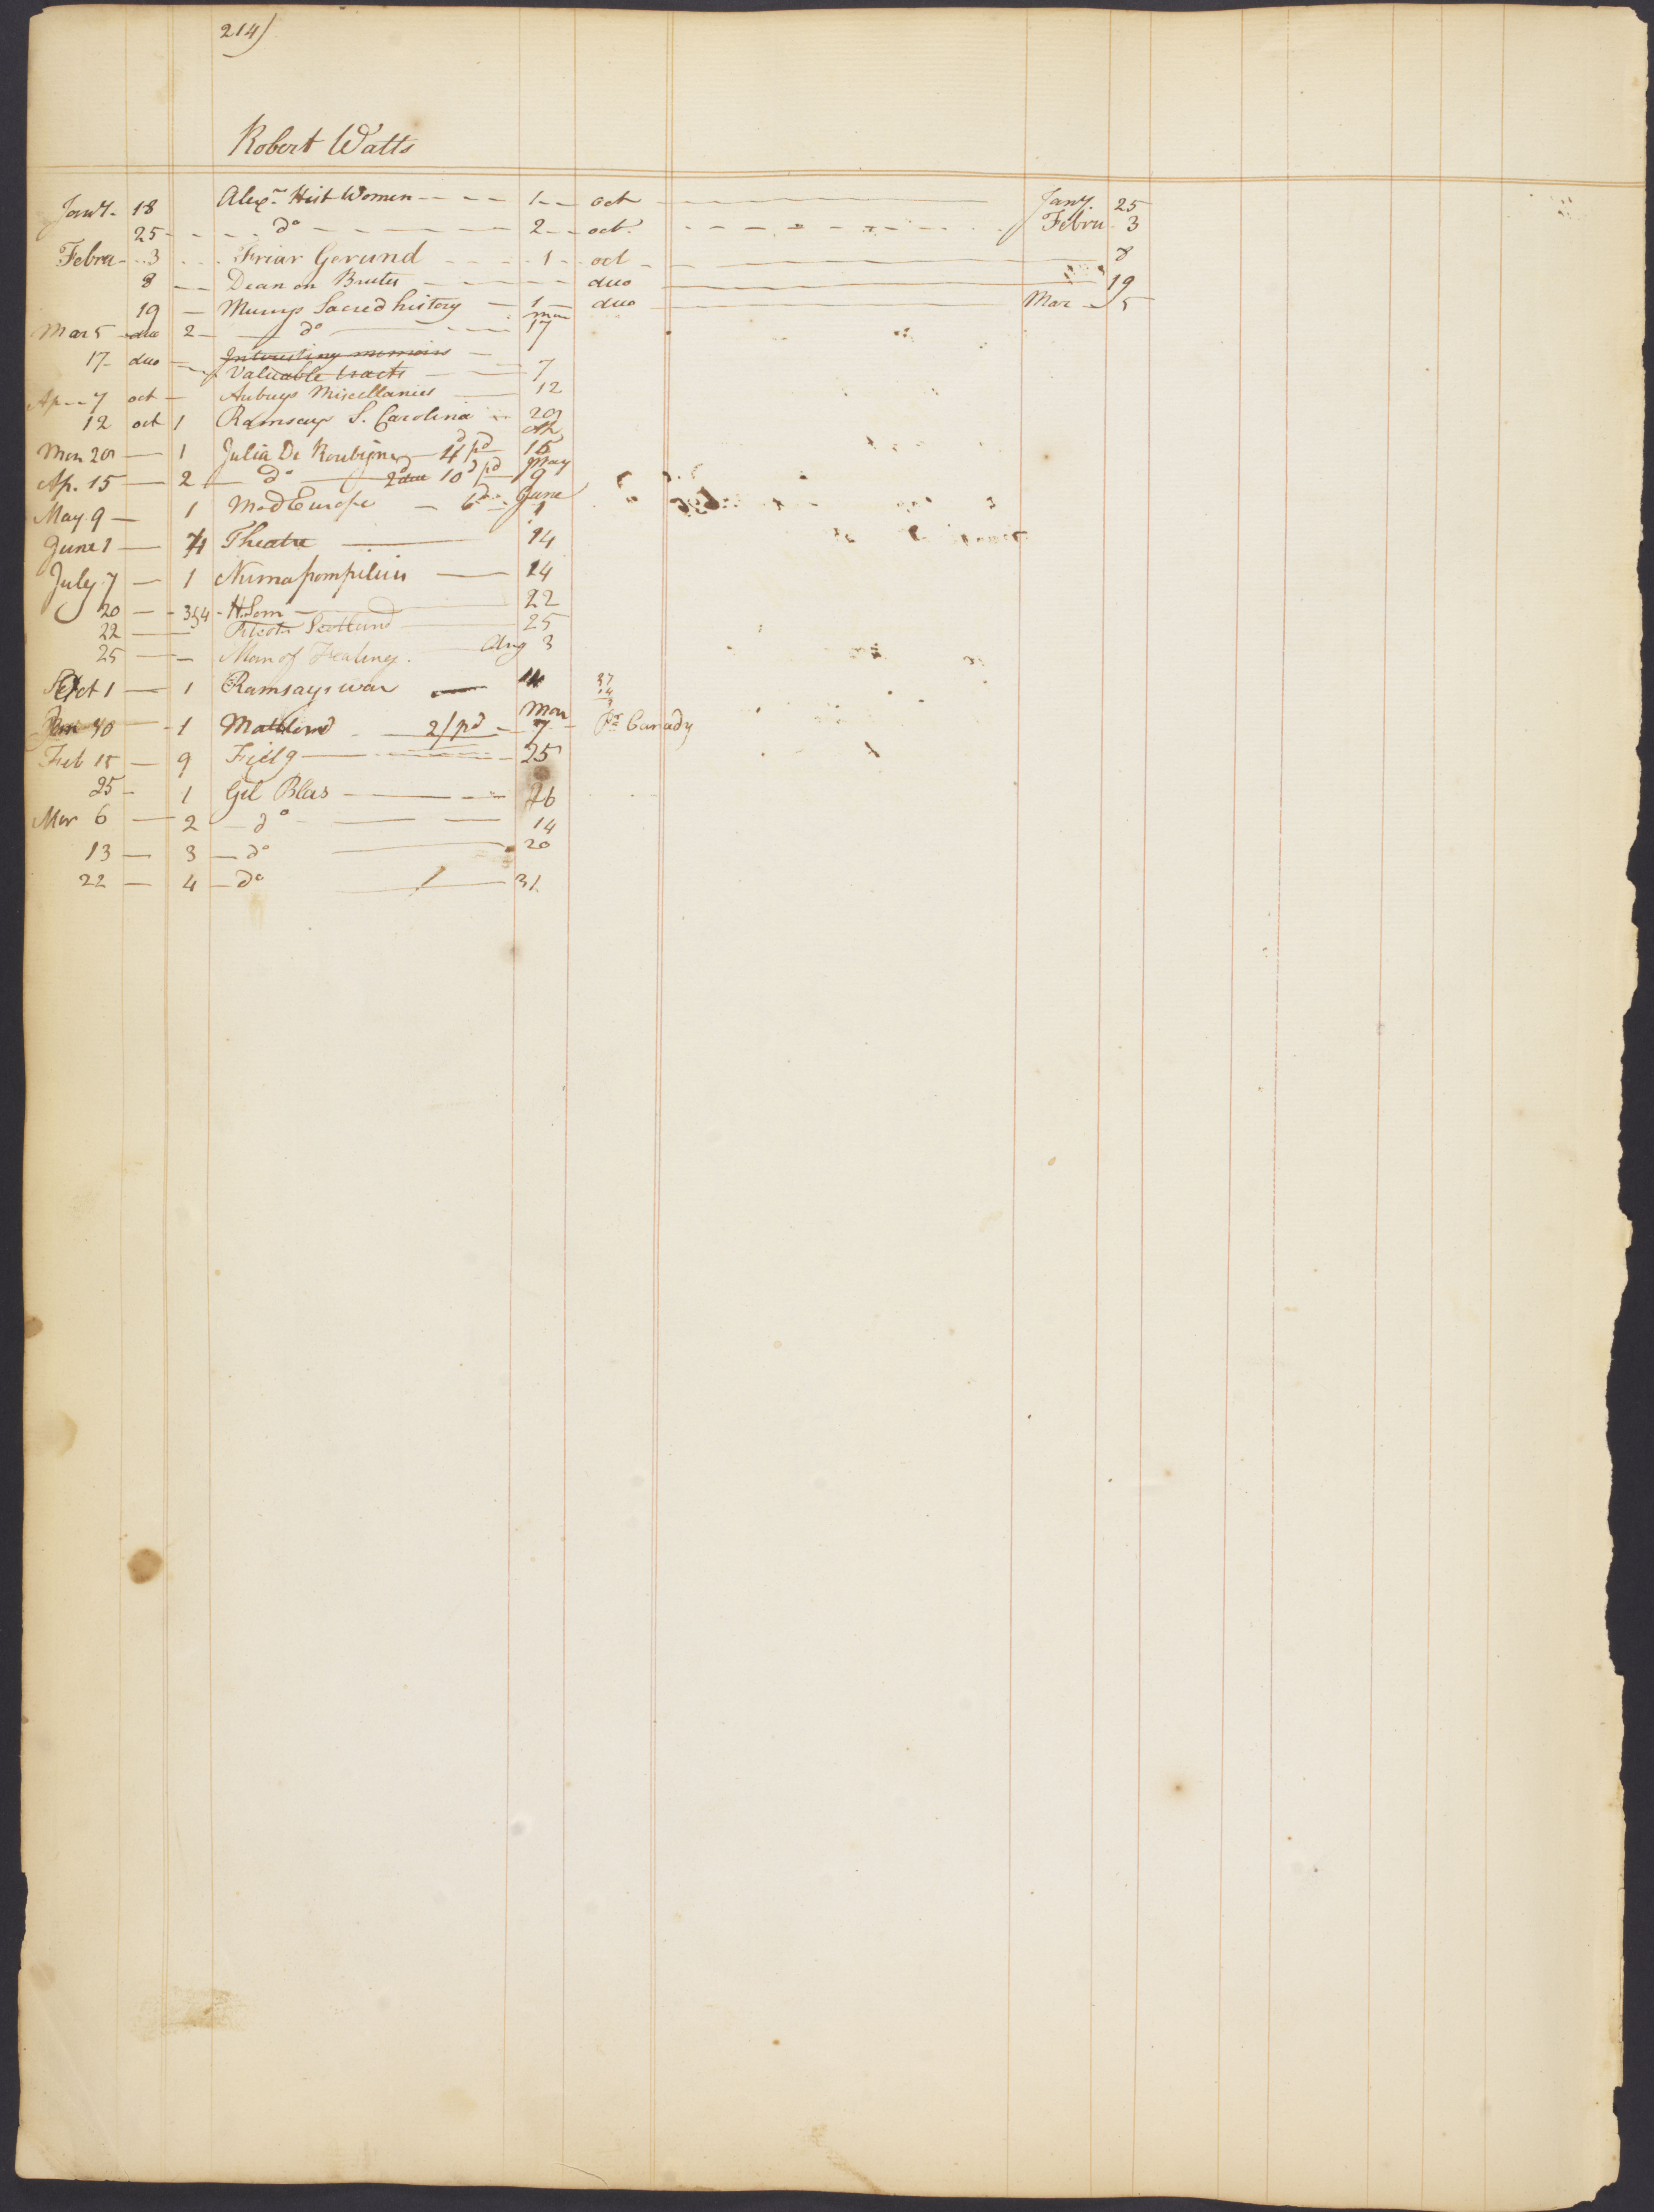 214)
Robert Watts
Jany. 18 Alexr. Hist Women 1 oct Jany. 25
25 do 2 oct. Febru 3
Febru 3 Friar Gerund 1 oct 8
8 Dean on Brutes duo 19
19 Murrys Sacred history 1 duo Mar 5
Mar 5 duo 2 do mar 17
17 duo Interesting memoirs
Valuable tracts 7
Ap 7 oct Aubreys Miscellanies 12
12 oct 1 Ramsays S. Carolina 20
1 Julia De Roubigne 4d pd 15
Ap. 15 2 do 10d pd May 9
May 9 1 Mod Europe 6d June 1
June 1 Theatre 14
July 7 1 Numa pompilius 14
20 3&4 H. Som 22
22 Scotland 25
25 Man of Fealing. Aug 3
Oct 1 1 Ramsays war 14
1 2/pd Mar 7 Pr Canady
Feb 15 9 25
25 1 Gil Blas
Mar 6 2 do 14
13 3 do 20
22 4 do 31